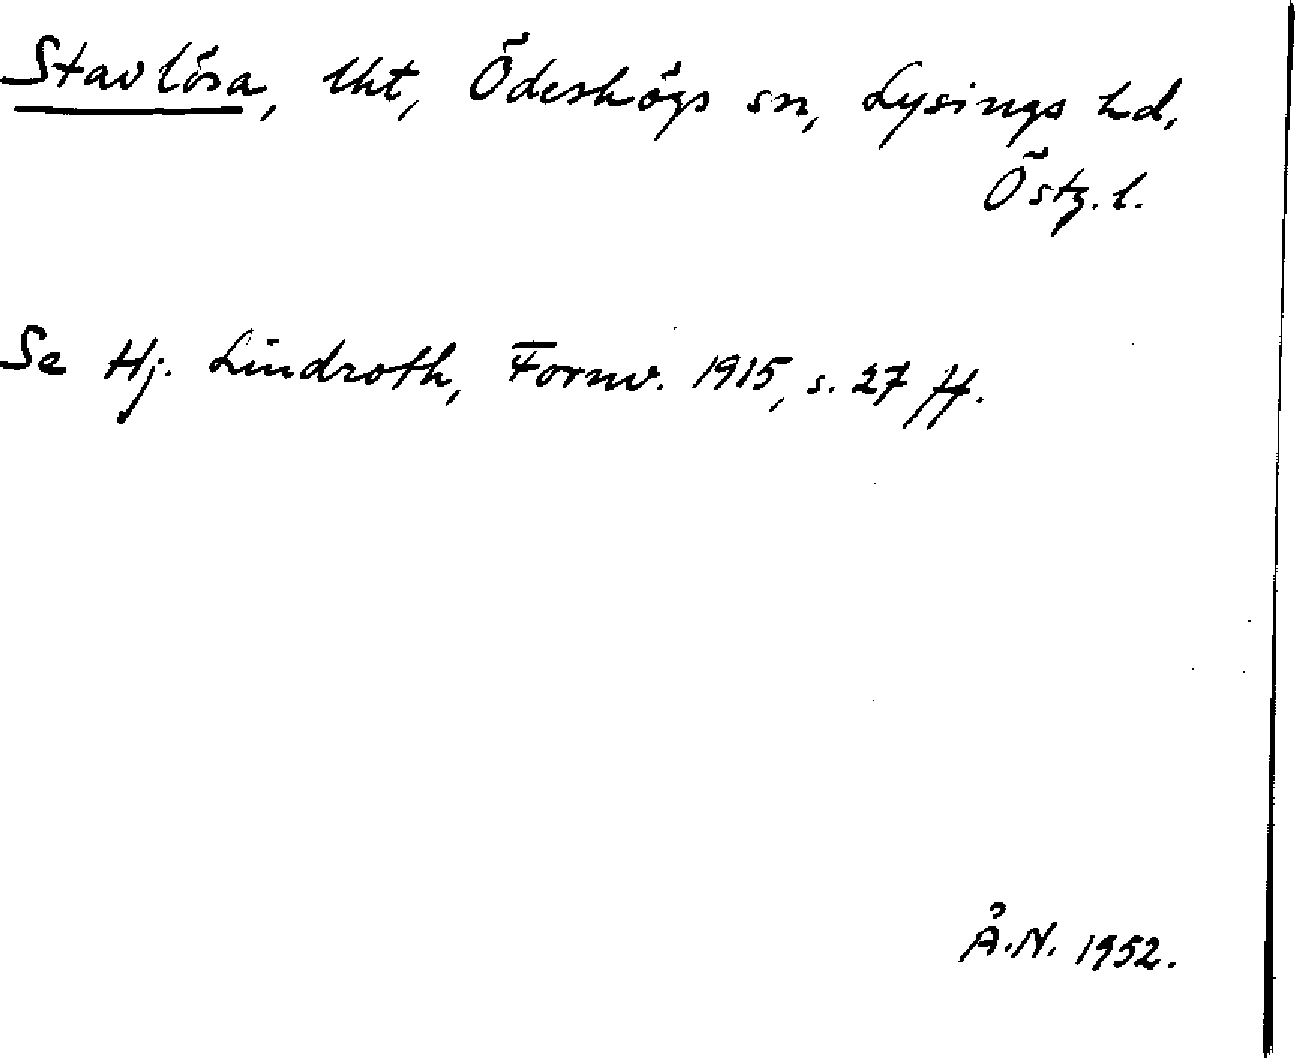 Stavlösa, Uht, Ödeshögs sn, Lysings hd,
Östg. l.
Se Hj. Lindroth, Fornv. 1915, s. 27 ff.
Å.N. 1952.